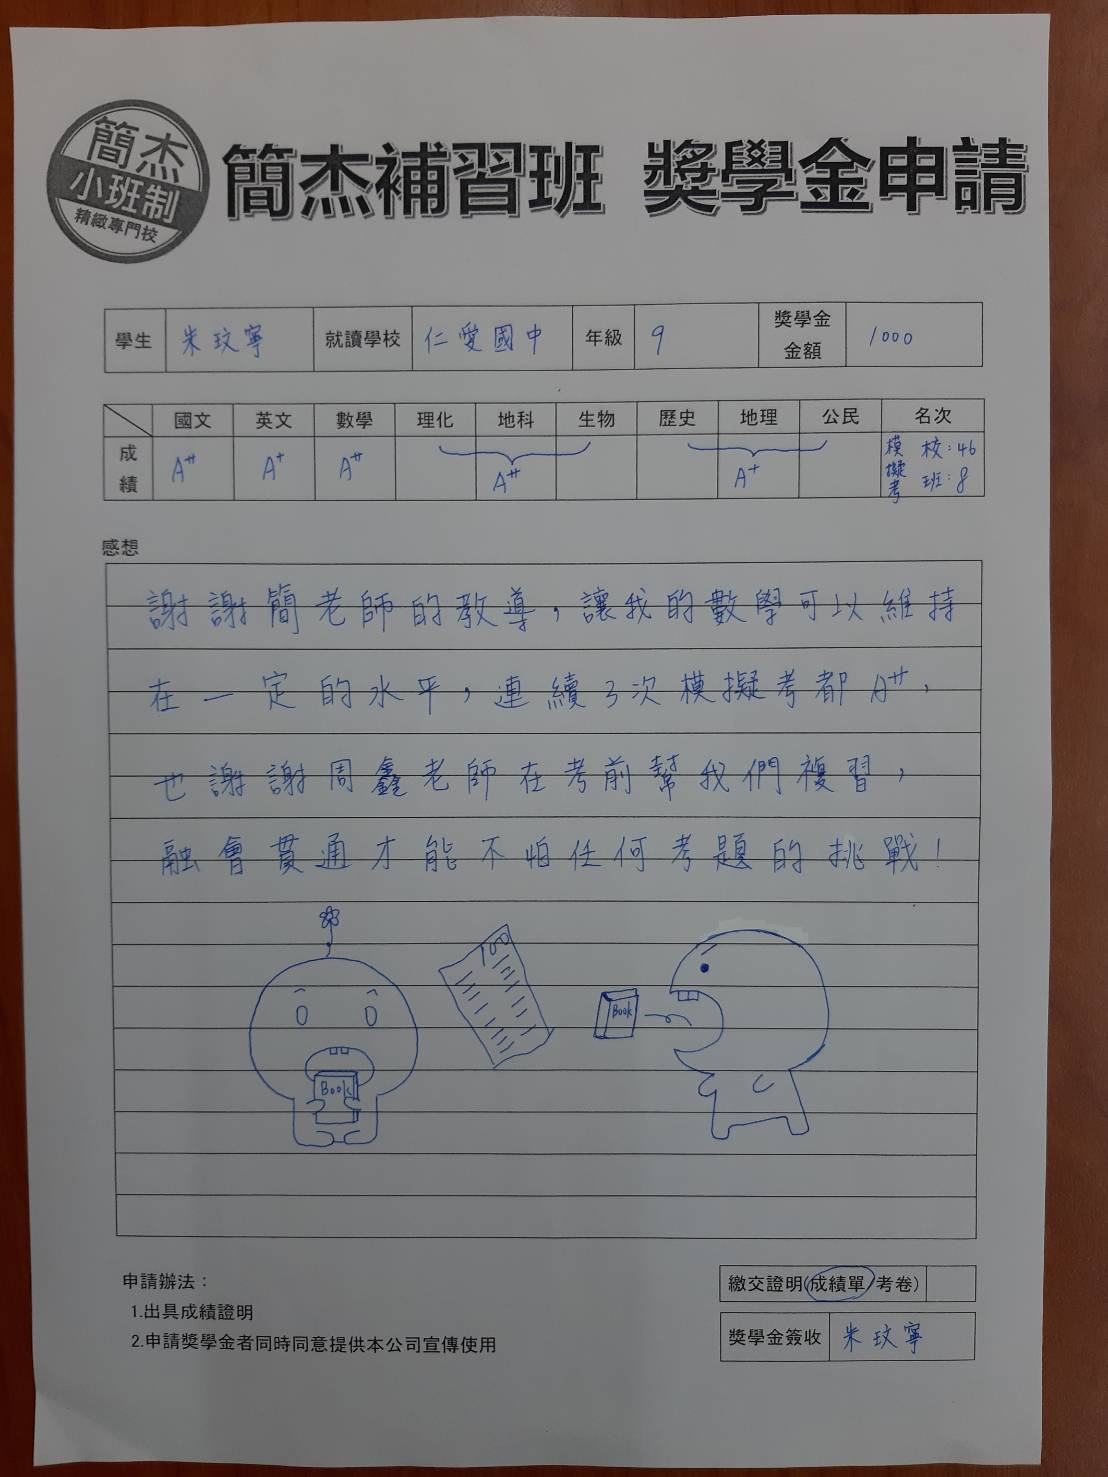 簡杰
小班制
精緻專門校
簡杰補習班 獎學金申請
學生 朱玟寧 就讀學校 仁愛國中 年級 9 獎學金金額 1000
國文 英文 數學 理化 地科 生物 歷史 地理 公民 名次
成績 A++ A+ A++ A++ A+ 模擬考 校:46 班:8
感想
謝謝簡老師的教導,讓我的數學可以維持
在一定的水平,連續3次模擬考都A++,
也謝謝周鑫老師在考前幫我們複習,
融會貫通才能不怕任何考題的挑戰!
100
Book
Book
申請辦法:
1.出具成績證明
2.申請獎學金者同時同意提供本公司宣傳使用
繳交證明(成績單/考卷)
獎學金簽收 朱玟寧